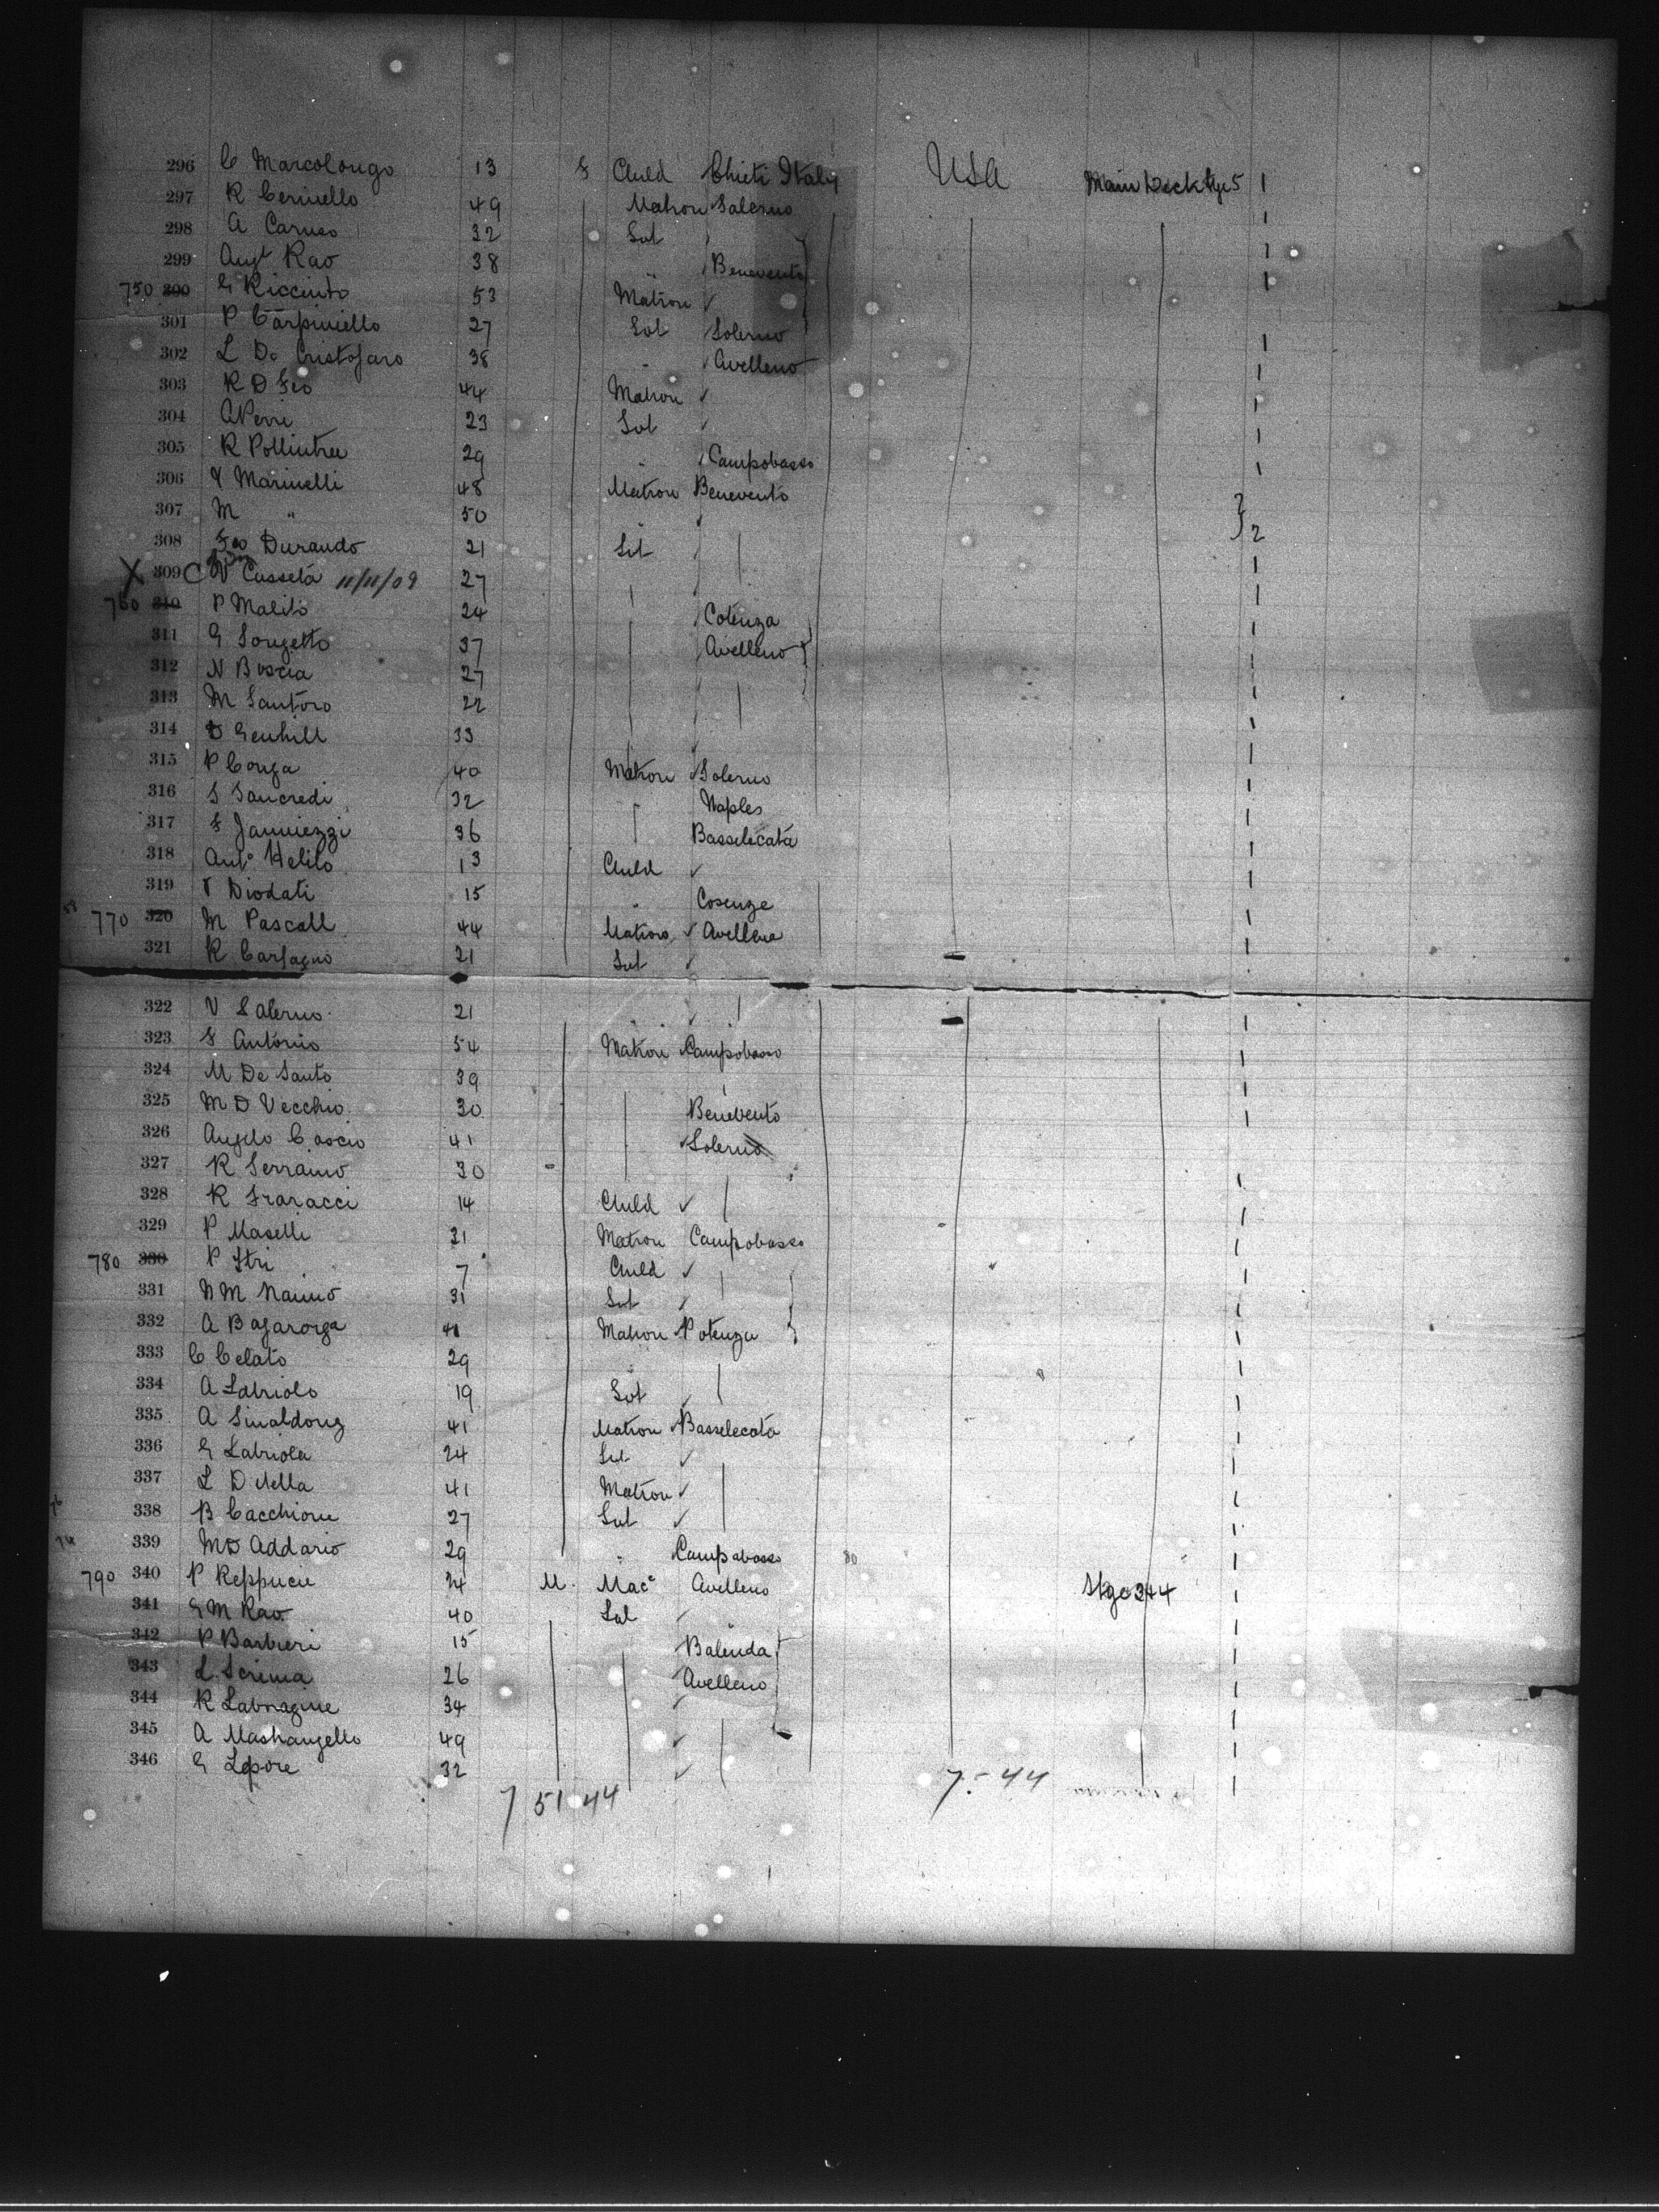 296 C Marcolongo 13 F Child Chieti Italy USA Main Deck Stge 5 1
297 R Cerniello 49 Matron Salerno
298 A Caruso 32 Sut
299 Augt Rao 38 " Benevento
750 300 G Ricciuto 53 Matron
301 P Carpiniello 27 Sut Solerno
302 L De Cristofaro 38 " Avelleno
303 R D Feo 44 Matron
304 A Perri 23 Sut
305 R Pollintree 29 " Campobasso
306 V Marinelli 48 Matron Benevento
307 M " 50 " 2
308 Durando 21 Sut
X 309 C V Casseta 11/11/09 27
760 310 P Malito 24 Cotenza
311 G Songetto 37 Avelleno
312 N Boscia 27
313 M Santoro 22
314 D Genhill 33
315 P Conga 40 Matron Solerno
316 S Sancredi 32 Naples
317 F Janniezzi 36 Basselecata
318 Anto Helito 13 Child
319 V Diodati 15 " Cosenze
770 320 M Pascall 44 Matron Avellena
321 R Carfagno 21 Sut
322 V Salerno 21 "
323 F Antonio 54 Matron Campobasso
324 M De Santo 39
325 M D Vecchio 30 Benevento
326 Angelo Coscio 41 Solerno
327 R Serraino 30
328 R Fraracci 14 Child
329 P Maselli 31 Matron Campobasso
780 330 P Itri 7 Child
331 N M Nanno 31 Sut
332 A Bagarorga 48 Matron Potenza
333 C Celato 29
334 A Labriolo 19 Sut
335 A Sinaldong 41 Matron Basselecata
336 G Labriola 24 Sut
337 L D Aella 41 Matron
338 B Cacchione 27 Sut
339 M D Addario 29 " Campabasso
790 340 P Reppucie 24 M Mac Avelleno Stge 3+4
341 G M Rao 40 Lab
342 P Barbieri 15 Balenda
343 L Scrima 26 Avelleno
344 R Labragine 34
345 A Mashangello 49
346 G Lepore 32
7 51 44 7 - 44